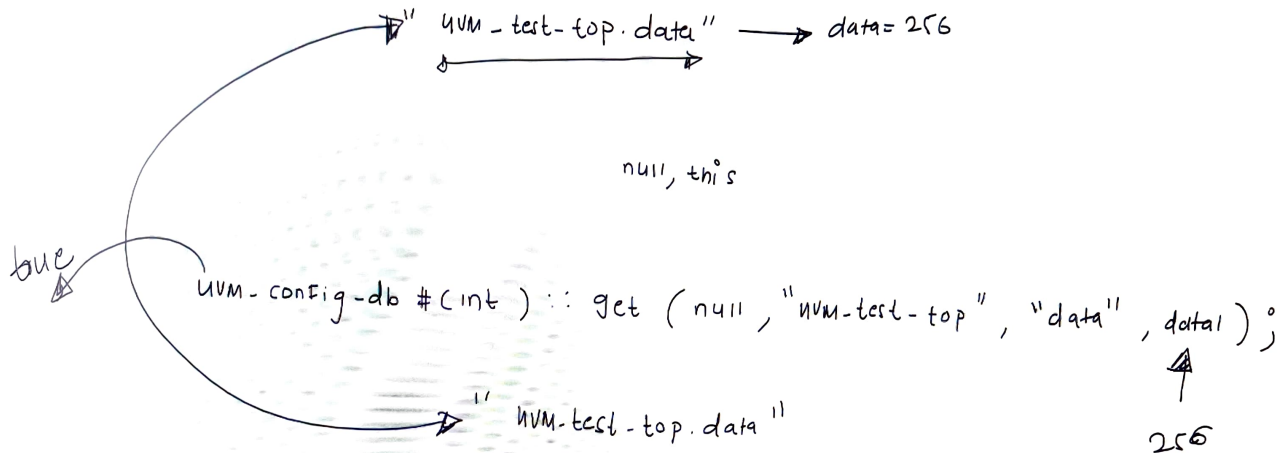 " uvm-test-top.data" → data=256
null, this
true
uvm-config-db #(int) :: get (null, "uvm-test-top", "data", data1);
" uvm-test-top.data"
256